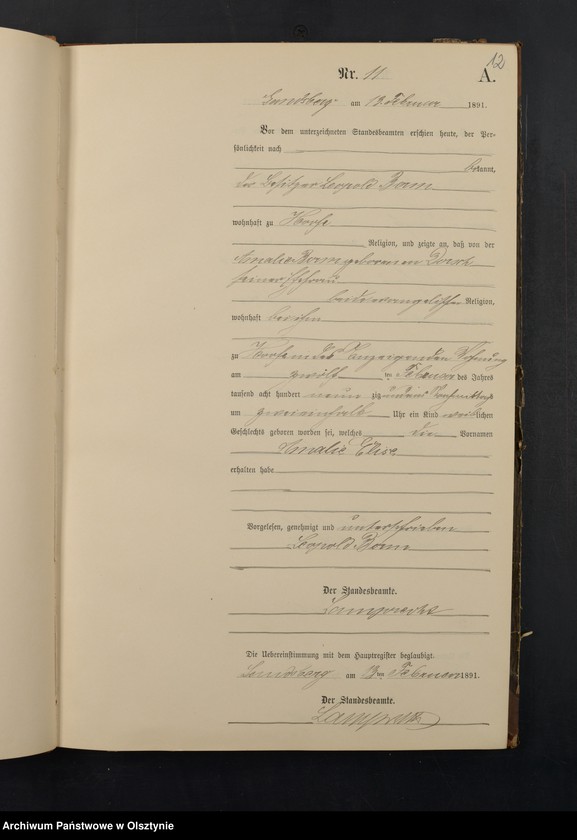 12
Nr. 11 A.
Landsberg am 13 Februar 1891.
Vor dem unterzeichneten Standesbeamten erschien heute, der Per-
sönlichkeit nach
bekannt,
der Besitzer Leopold
wohnhaft zu
Religion, und zeigte an, daß von der
Amalie geborenen
seiner Ehefrau
beide evangelischer Religion,
wohnhaft bei ihm
zu in des Anzeigenden Wohnung
am zwölften Februar des Jahres
tausend acht hundert neunzig und eins
um zweieinhalb Uhr ein Kind weiblichen
Geschlechts geboren worden sei, welches den Vornamen
Amalie Elise
erhalten habe
Vorgelesen, genehmigt und unterschrieben
Leopold
Der Standesbeamte.
Die Uebereinstimmung mit dem Hauptregister beglaubigt.
Landsberg am 13ten Februar 1891.
Der Standesbeamte.
Archiwum Państwowe w Olsztynie